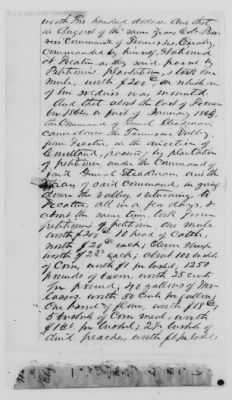 worth Two hundred dollars. And that
in August of the same year Col. 
Command of Tennessee Cavalry
Commanded by himself, Stationed
at Decatur as they said, passed by
Petitioners plantation, & took one
mule, worth $200 on which one
of his soldiers was mounted.
And that about the last of December
1864, or first of January 1865,
the Command of Genl Steedman
came down the Tennessee Valley
from Decatur, in the direction of
Courtland, passing by plantation
of petitioner under the Command of
said General Steedman, and the
of said Command, in going
down the Valley, & returning to
Decatur, all in a few days, &
about the same time, took from
petitioner, One mule
worth $200, 10 head of Cattle,
worth $20 each; Eleven sheep
worth $2 each; about 100 bushels
of Corn, worth $1 per bushel; 1250
pounds of bacon, worth 25 cents
per pound; 40 gallons of Mo-
lasses, worth 50 cents per gallon;
One barrel of flour, worth 
5 bushels of Corn meal, worth
per bushel; 2½ bushels of
dried peaches, worth $1 per bushel;